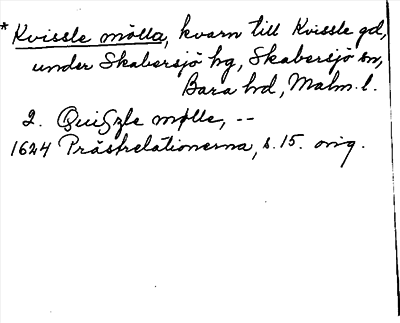 * Kvissle mölla, kvarn till Kvissle gd,
under Skabersjö hg, Skabersjö sn,
Bara hd, Malm. l.
2. Quiszle mølle, --
1624 Prästrelationerna, s. 15. orig.